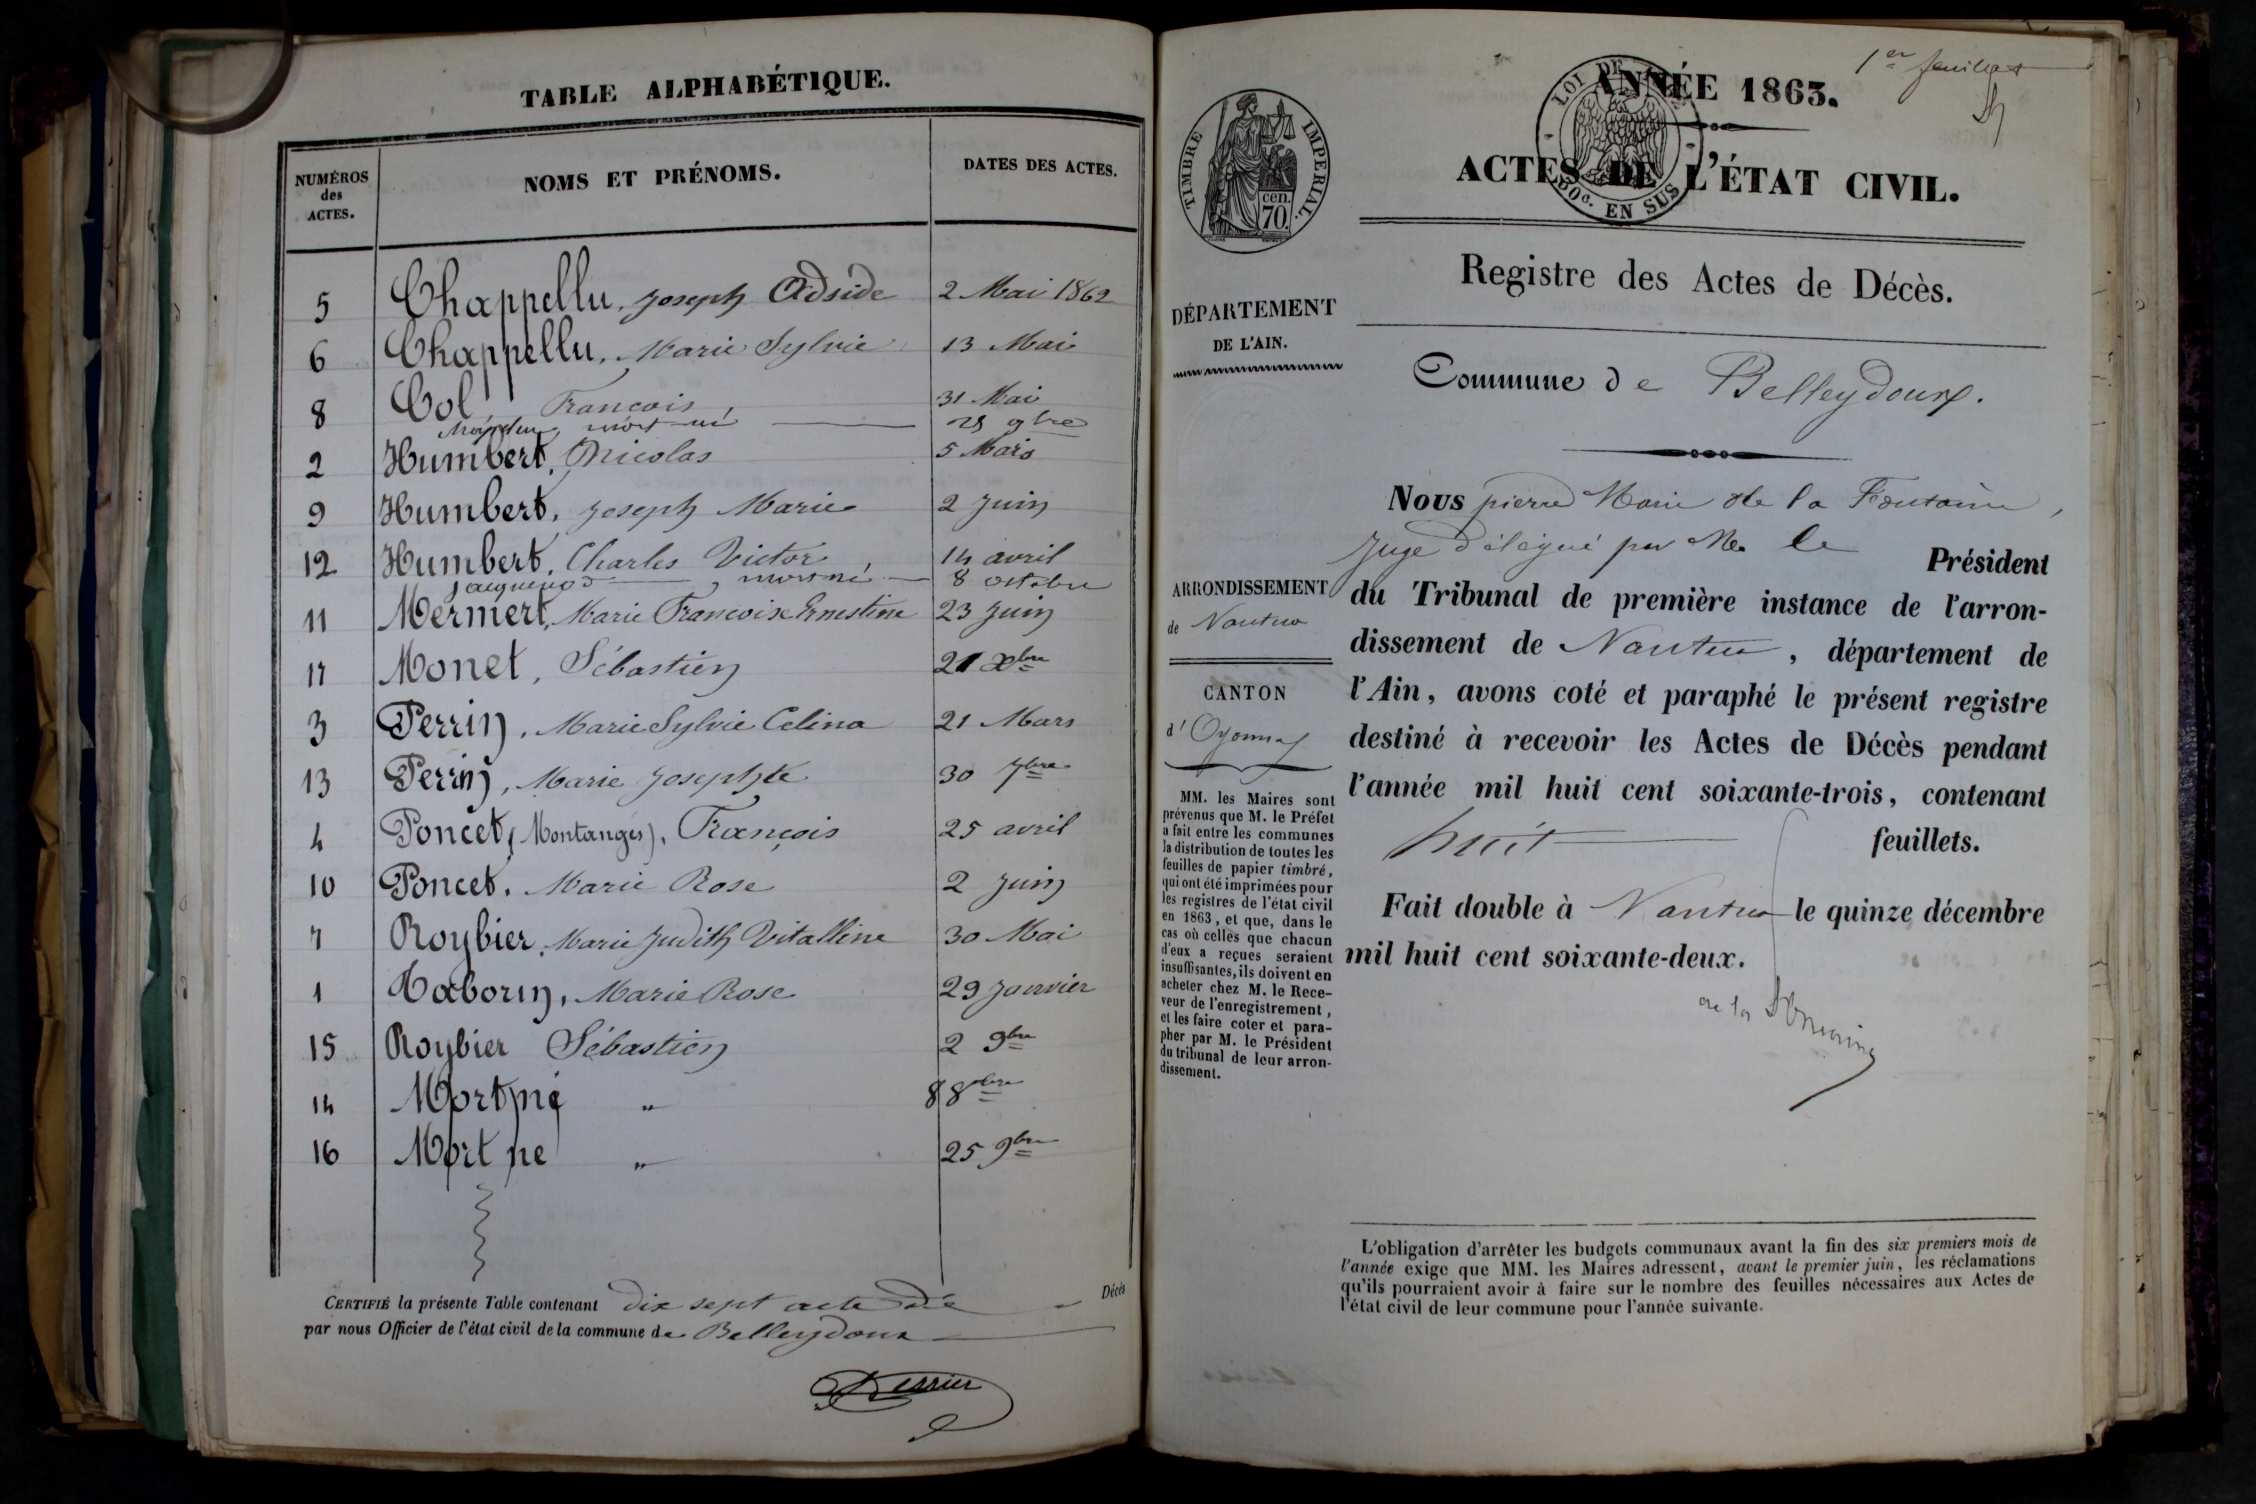 TABLE ALPHABÉTIQUE.
NUMÉROS des ACTES. NOMS ET PRÉNOMS. DATES DES ACTES.
5 Chappellu, Joseph Adside 2 Mai 1862
6 Chappellu, Marie Sylvie 13 Mai
8 Col François, 31 Mai
mort né 25 9bre
2 Humbert, Nicolas 5 Mars
9 Humbert, Joseph Marie 2 Juin
12 Humbert, Charles Victor, 14 avril
Jacquenod, mort né 8 octobre
11 Mermert, Marie Françoise Ernestine 23 Juin
17 Monet, Sébastien 21 Xbre
3 Perrin, Marie Sylvie Celina 21 Mars
13 Perrin, Marie Josephte 30 7bre
4 Poncet, (Montanges), François 25 avril
10 Poncet, Marie Rose 2 Juin
7 Roybier, Marie Judith Vitalline 30 Mai
1 Taborin, Marie Rose 29 Janvier
15 Roybier Sébastien 2 9bre
14 Mort né " 8 8bre
16 Mort ne " 25 9bre
CERTIFIÉ la présente Table contenant dix sept acte de Décès
par nous Officier de l'état civil de la commune de Belleydoux
1er feuillet
TIMBRE IMPERIAL.
cen. 70.
LOI DE
50c. EN SUS
ANNÉE 1863.
ACTES DE L'ÉTAT CIVIL.
Registre des Actes de Décès.
DÉPARTEMENT
DE L'AIN.
Commune de Belleydoux.
ARRONDISSEMENT
de Nantua
CANTON
d'Oyonnax
MM. les Maires sont
prévenus que M. le Préfet
a fait entre les communes
la distribution de toutes les
feuilles de papier timbré,
qui ont été imprimées pour
les registres de l'état civil
en 1863, et que, dans le
cas où celles que chacun
d'eux a reçues seraient
insuffisantes, ils doivent en
acheter chez M. le Rece-
veur de l'enregistrement,
et les faire coter et para-
pher par M. le Président
du tribunal de leur arron-
dissement.
Nous pierre Marie de la Fontaine,
Juge délégué par Mr le Président
du Tribunal de première instance de l'arron-
dissement de Nantua, département de
l'Ain, avons coté et paraphé le présent registre
destiné à recevoir les Actes de Décès pendant
l'année mil huit cent soixante-trois, contenant
huit feuillets.
Fait double à Nantua le quinze décembre
mil huit cent soixante-deux.
de la
L'obligation d'arrêter les budgets communaux avant la fin des six premiers mois de
l'année exige que MM. les Maires adressent, avant le premier juin, les réclamations
qu'ils pourraient avoir à faire sur le nombre des feuilles nécessaires aux Actes de
l'état civil de leur commune pour l'année suivante.